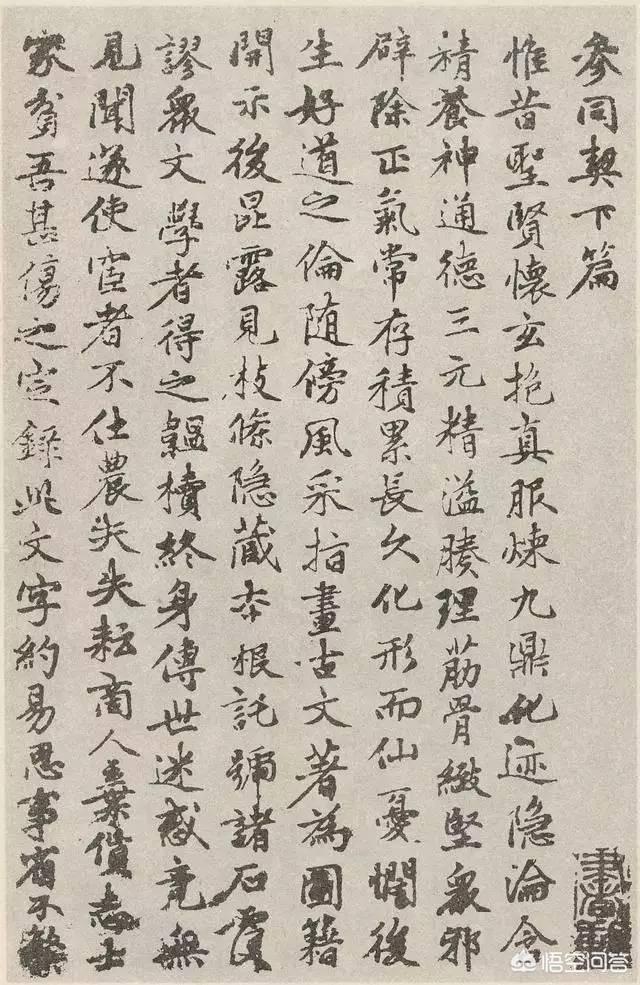 參同契下篇
惟昔聖賢懷玄抱真服煉九鼎化迹隐淪含
精養神通德三元精溢腠理筋骨緻堅衆邪
辟除正氣常存積累長久化形而仙憂憫後
生好道之倫随傍風采指畫古文著為圖籍
開示後昆露見枝條隐藏本根託號諸石覆
謬衆文學者得之韞櫝終身傳世迷惑竟無
見聞遂使宦者不仕農夫失耘商人棄貨志士
家貧吾甚傷之定錄此文字約易思事省不繁
悟空问答